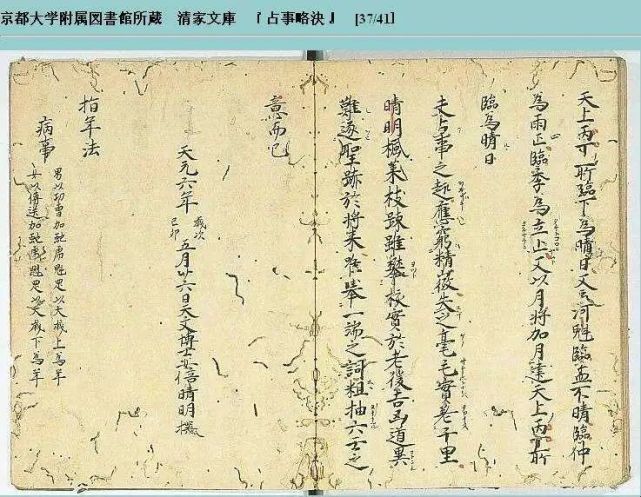 京都大学附属図書館所蔵 清家文庫 『占事略決』 [37/41]
天上丙丁所臨下為晴日又云河魁臨孟不晴臨仲
為雨正臨季為立止又以月将加月建天上丙丁所
臨為晴日
夫占事之趣應窮精微失之毫毛實差千里
晴明楓葉枝疎雖攀核實於老後吉凶道異
難逐聖跡於将来唯挙一端之詞粗抽六壬之
意而已
天元六年 歳次己卯 五月廿六日天文博士安倍晴明撰
指年法
病事
男以功曹加 魁 以大 上為年
女以傳送加 魁 以 下為年